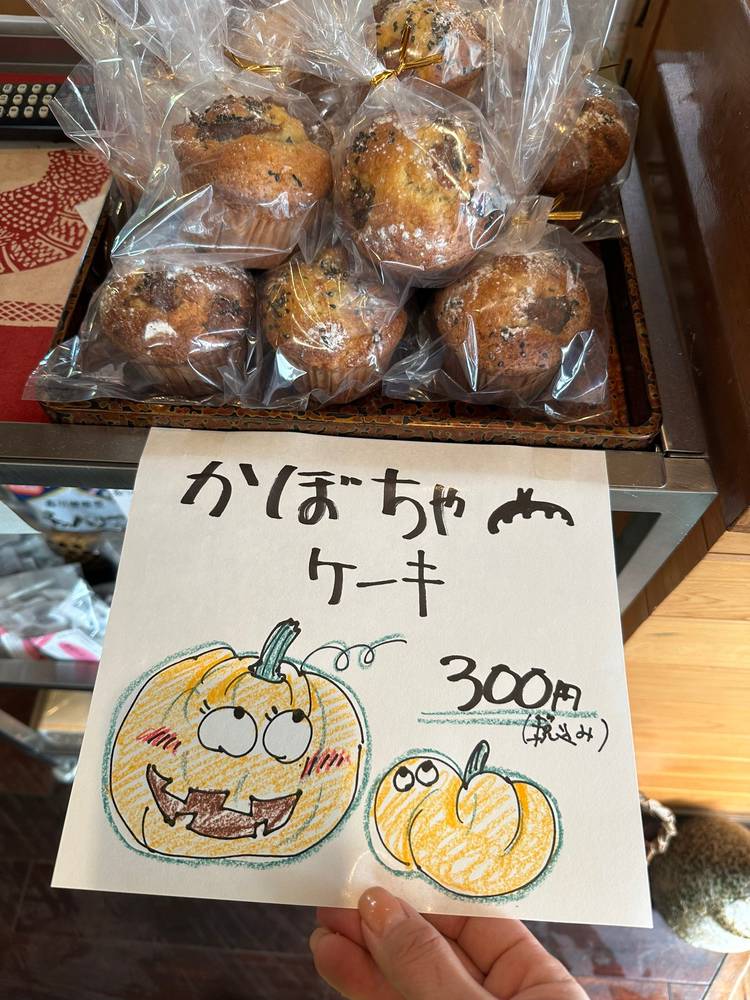 かぼちゃ
ケーキ
300円
(税込み)